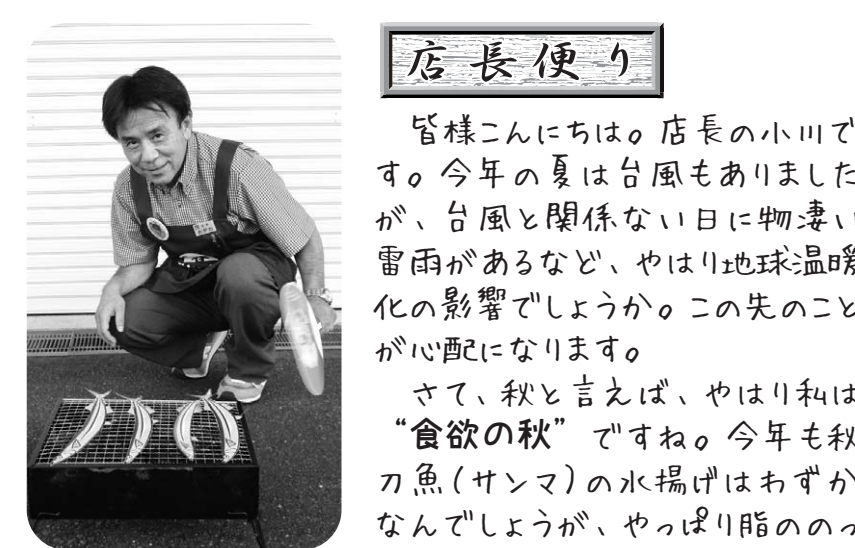 店長便り
皆様こんにちは。店長の小川で
す。今年の夏は台風もありました
が、台風と関係ない日に物凄い
雷雨があるなど、やはり地球温暖
化の影響でしょうか。この先のこと
が心配になります。
さて、秋と言えば、やはり私は
“食欲の秋”ですね。今年も秋
刀魚(サンマ)の水揚げはわずか
なんでしょうが、やっぱり脂ののっ